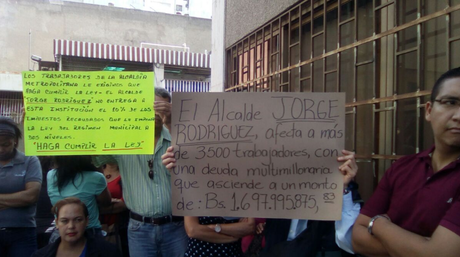 LOS TRABAJADORES DE LA ALCALDÍA
METROPOLITANA LE EXIGIMOS QUE
HAGA CUMPLIR LA LEY. EL ALCALDE
"JORGE RODRÍGUEZ" NO ENTREGA A
ESTA INSTITUCIÓN EL 10% DE LOS
INGRESOS RECAUDADOS QUE LO EMPANA
LA LEY DEL REGIMEN MUNICIPAL A DOS
NIVELES.
"HAGA CUMPLIR LA LEY"
El Alcalde JORGE
RODRIGUEZ, afecta a más
de 3500 trabajadores, con
una deuda multimillonaria
que asciende a un monto
de: Bs. 1.697.995.875,83